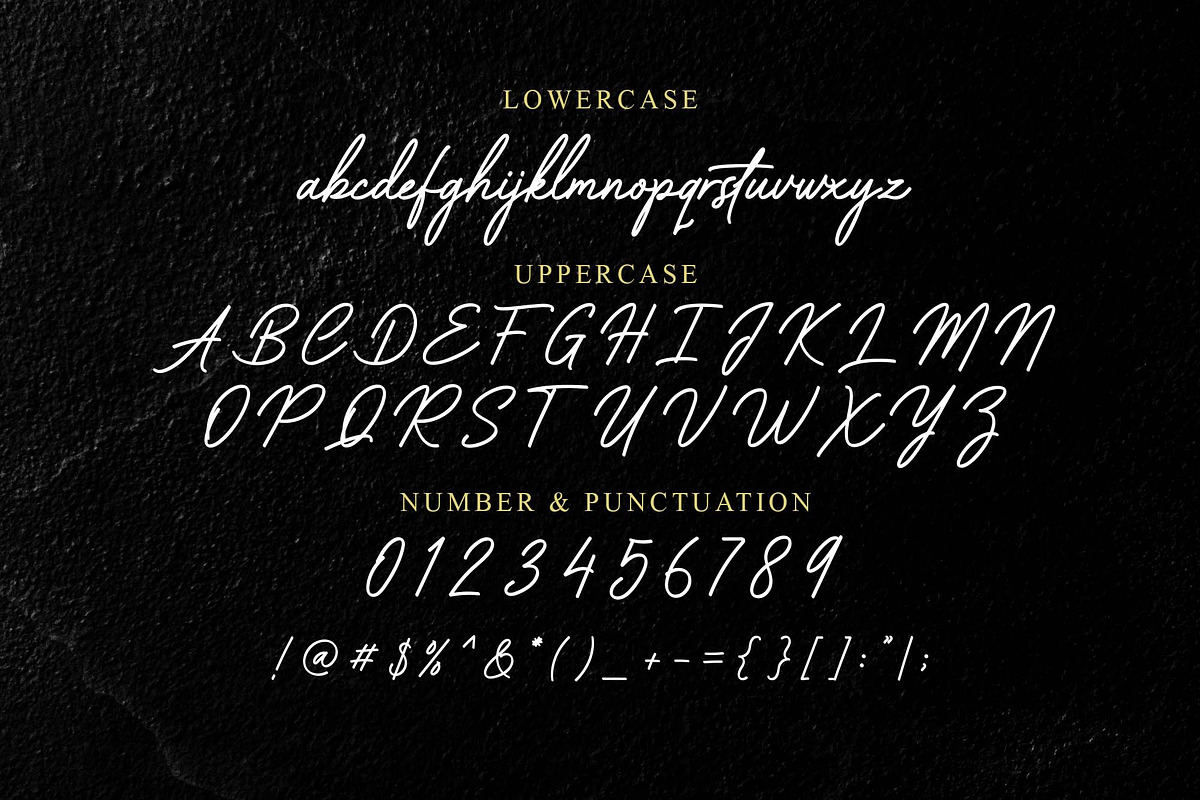 LOWERCASE
abcdefghijklmnopqrstuvwxyz
UPPERCASE
ABCDEFGHIJKLMN
OPQRSTUVWXYZ
NUMBER & PUNCTUATION
0123456789
!@#$%^&*()_+-={}[]:"|;